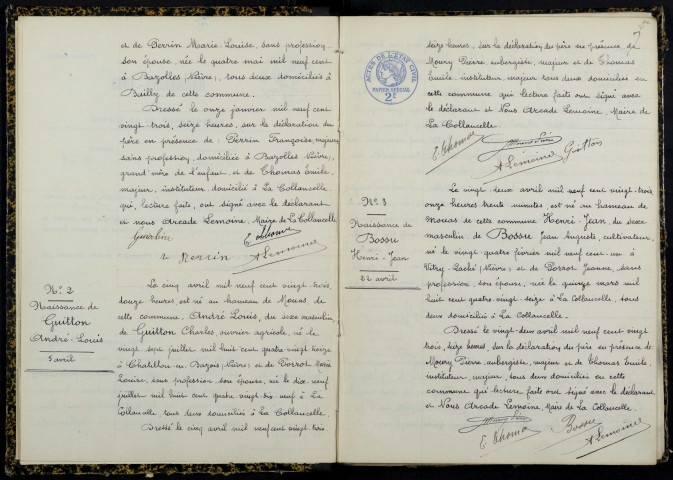 et de Perrin Marie-Louise, sans profession
son épouse, née le quatre mai mil neuf cent
à Bazolles Nièvre, tous deux domiciliés à
de cette commune.
Dressé le onze janvier mil neuf cent
vingt-trois, seize heures, sur la déclaration du
père en présence de: Perrin Françoise, majeure
sans profession, domiciliée à Bazolles (Nièvre),
grand'mère de l'enfant, et de Thomas Emile,
majeur, instituteur, domicilié à La Collancelle
qui, lecture faite, ont signé avec le déclarant
et nous Arcade Lemoine, Maire de La Collancelle
E. Thomas
Perrin
A Lemoine
N° 2
Naissance de
Guitton
André-Louis
5 avril
Le cinq avril mil neuf cent vingt-trois,
douze heures est né au hameau de Mouas, de
cette commune, André Louis, du sexe masculin
de Guitton Charles, ouvrier agricole, né le
vingt sept juillet mil huit cent quatre-vingt treize
à Chatillon en Bazois (Nièvre) et de Porrot Marie
Louise, sans profession son épouse, née le dix-neuf
juillet mil huit cent quatre vingt dix-neuf à La
Collancelle tous deux domiciliés à La Collancelle.
Dressé le cinq avril mil neuf cent vingt-trois
seize heures, sur la déclaration du père en présence de
Moury Pierre, aubergiste, majeur et de Thomas
Emile, instituteur, majeur tous deux domiciliés en
cette commune qui lecture faite ont signé avec
le déclarant et Nous Arcade Lemoine, Maire de
La Collancelle.
ACTES DE L'ETAT CIVIL
PAPIER SPECIAL
2F
E. Thomas
A Lemoine
Guitton
N° 3
Naissance de
Bossu
Henri-Jean
22 avril
Le vingt-deux avril mil neuf cent vingt-trois
onze heures trente minutes est né au hameau de
Mouas de cette commune Henri-Jean, du sexe
masculin de Bossu Jean Auguste, cultivateur,
né le vingt quatre février mil neuf cent un à
Vitry-Laché (Nièvre) et de Porrot Jeanne, sans
profession, son épouse, née le quinze mars mil
huit cent quatre vingt-seize à La Collancelle, tous
deux domiciliés à La Collancelle.
Dressé le vingt-deux avril mil neuf cent vingt
trois, seize heures, sur la déclaration du père en présence de
Moury Pierre aubergiste, majeur et de Thomas Emile,
instituteur, majeur, tous deux domiciliés en cette
commune, qui lecture faite ont signé avec le déclarant
et Nous Arcade Lemoine, Maire de La Collancelle.
E. Thomas
Bossu
A Lemoine